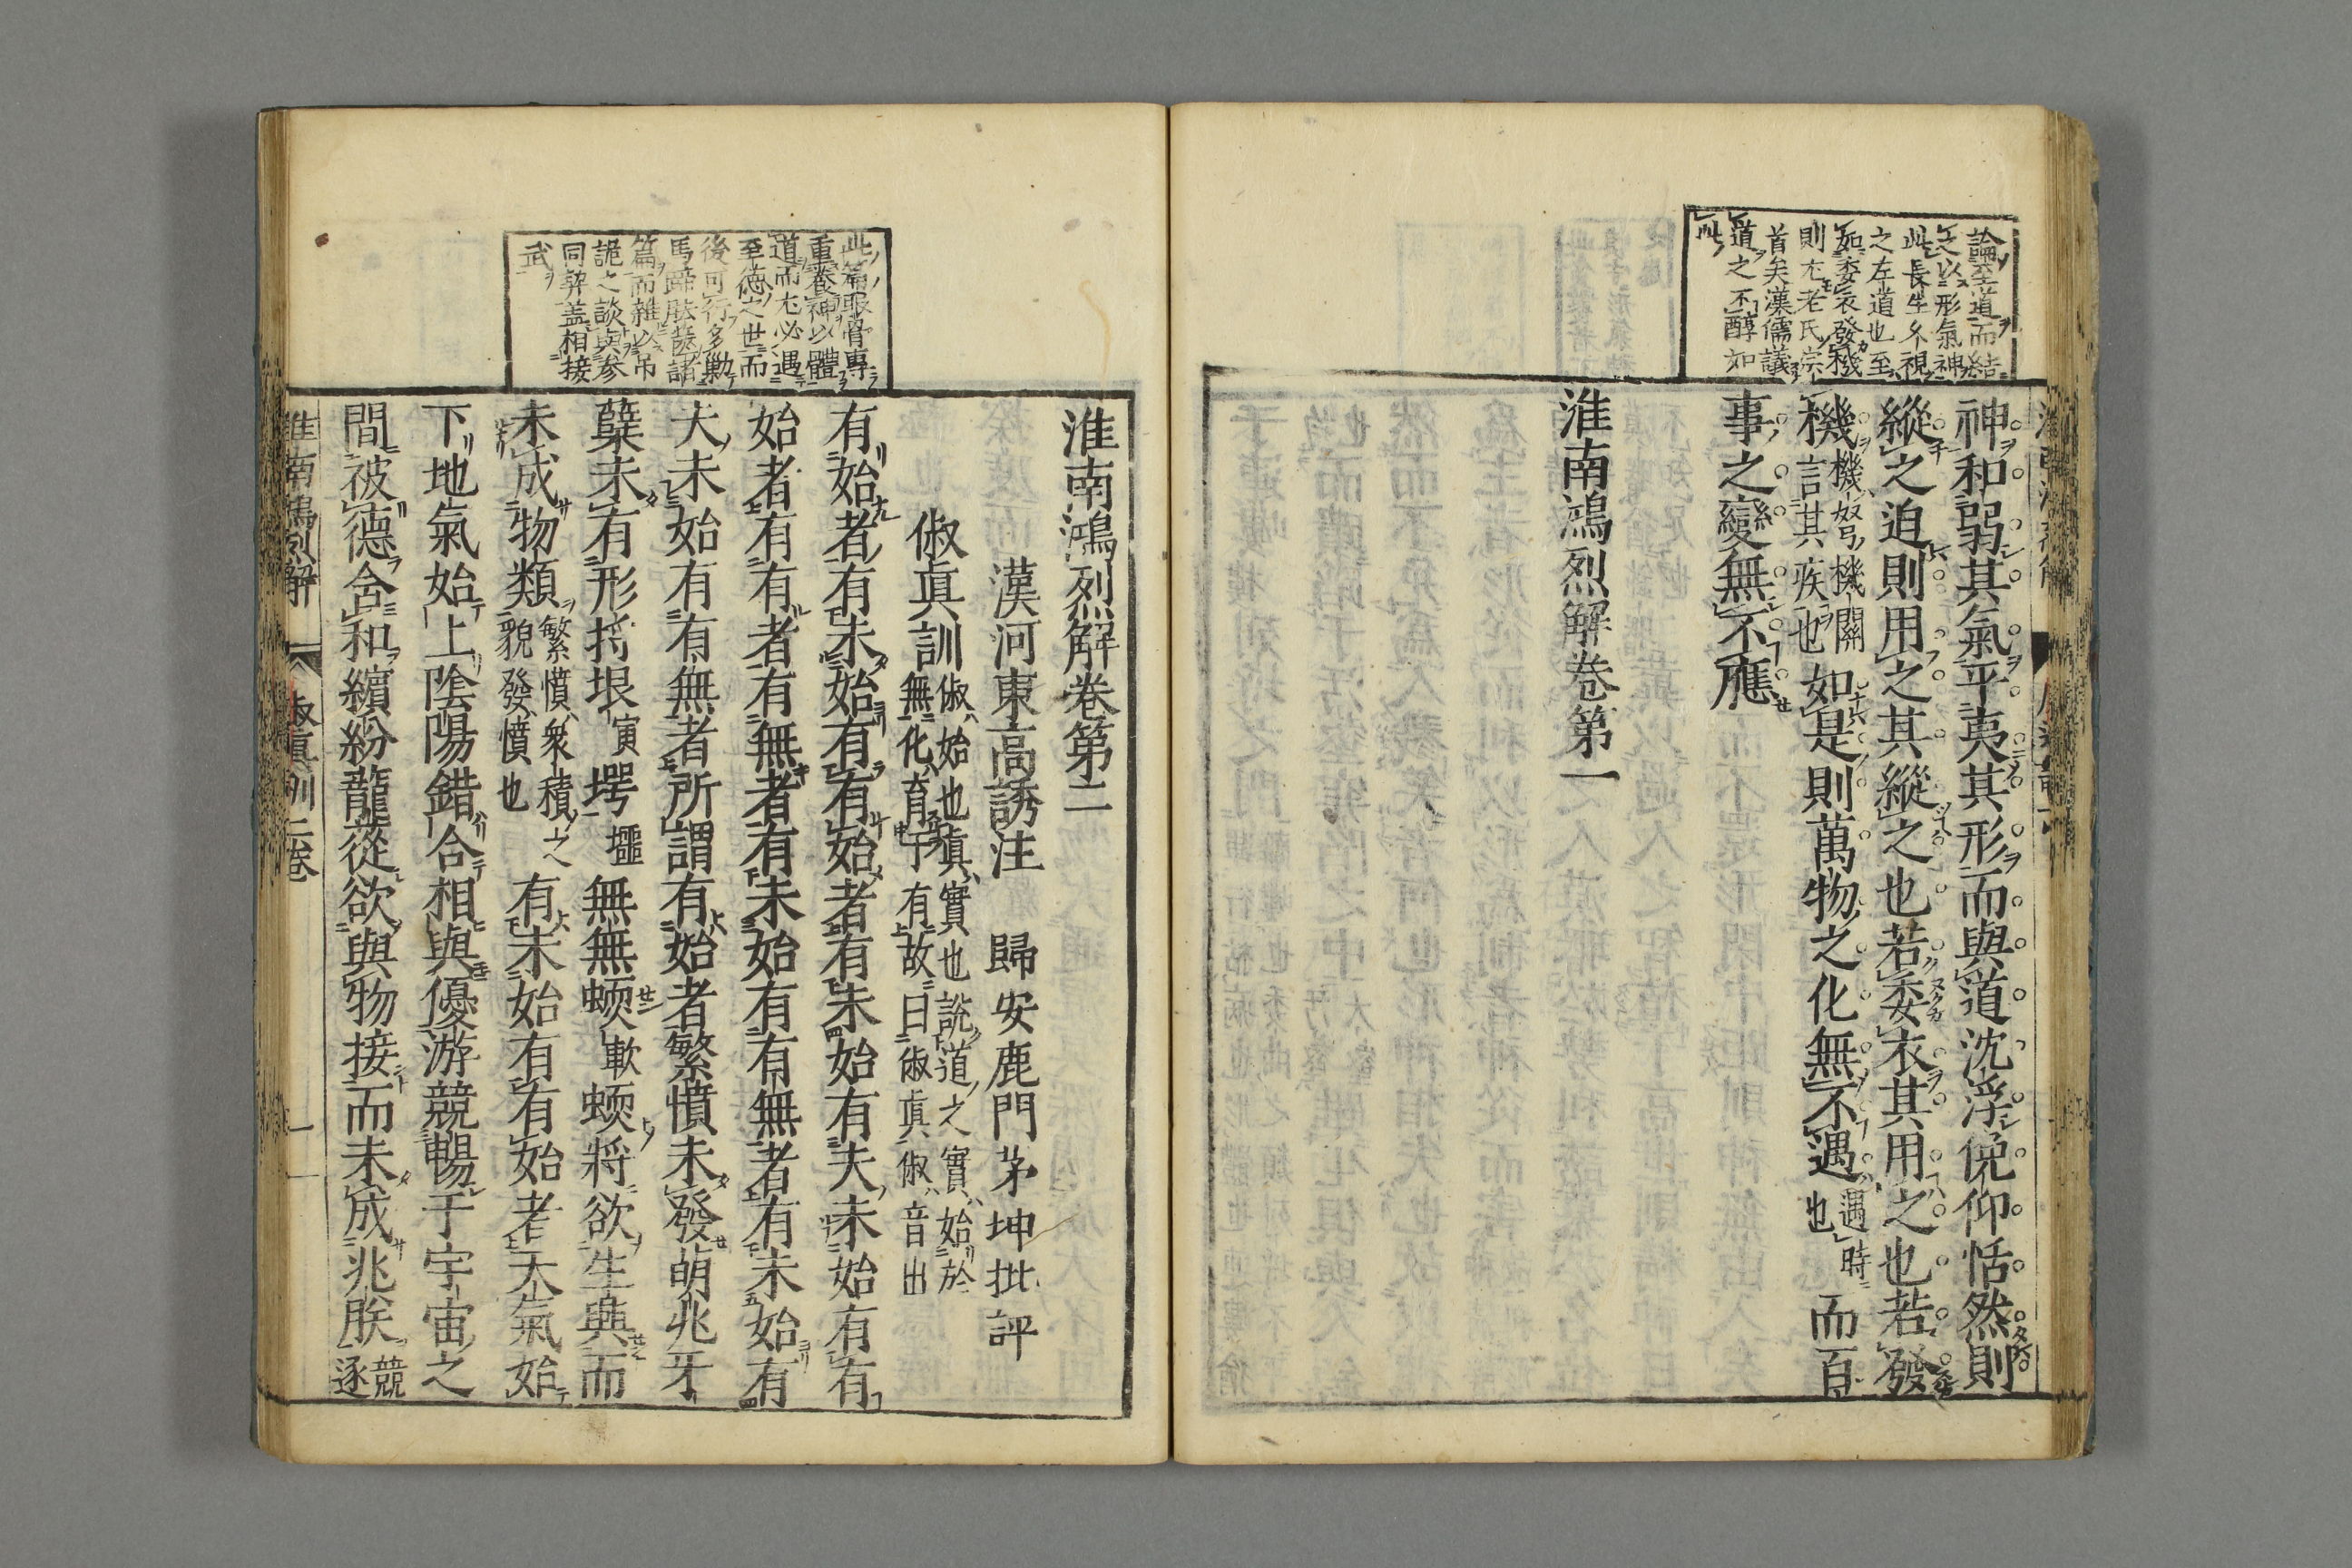 論至道而結
之以形氣神
此長生久視
之左道也至
如委衣發機
則尤老氏宗
首矣漢儒議
道之不醇如
此
神和弱其氣平夷其形而與道沈浮俛仰恬然則
縱之迫則用之其縱之也若委衣其用之也若發
機機弩機關言其疾也如是則萬物之化無不遇遇時也而百
事之變無不應
淮南鴻烈解卷第一
此篇眼骨專
重養神以體
道而尤必遇
至德之世而
後可行多勦
馬蹄胠篋諸
篇而雜以吊
詭之談與參
同契盖相接
武
淮南鴻烈解卷第二
漢河東高誘注 歸安鹿門茅坤批評
俶眞訓俶始也眞實也說道之實始於無化育于有故曰俶眞俶音出
有始者有未始有有始者有未始有夫未始有有
始者有有者有無者有未始有有無者有未始有
夫未始有有無者所謂有始者繁憤未發萌兆牙
櫱未有形埒垠寅堮堮無無蝡軟蝡將欲生與而
未成物類繁憤衆積之貌發憤也有未始有有始者天氣始
下地氣始上陰陽錯合相與優游競暢于宇宙之
間被德含和繽紛蘢蓯欲與物接而未成兆朕競逐
淮南鴻烈解 俶眞訓二卷 一